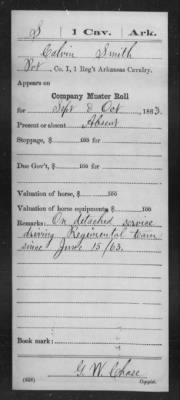 S | 1 Cav. | Ark.
Calvin Smith
Pvt., Co. I, 1 Reg't Arkansas Cavalry.
Appears on
Company Muster Roll
for Sept & Oct, 1863.
Present or absent Absent
Stoppage, $ 100 for
Due Gov't, $ 100 for
Valuation of horse, $ 100
Valuation of horse equipments, $ 100
Remarks: On detached service
driving Regimental team
since June 15/63.
Book mark:
G. W. Chase
(858) Copyist.